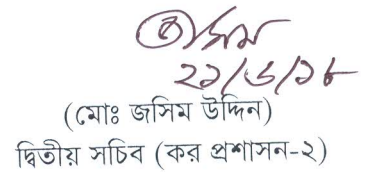 জসিম
২১/৬/১৮
(মোঃ জসিম উদ্দিন)
দ্বিতীয় সচিব (কর প্রশাসন-২)